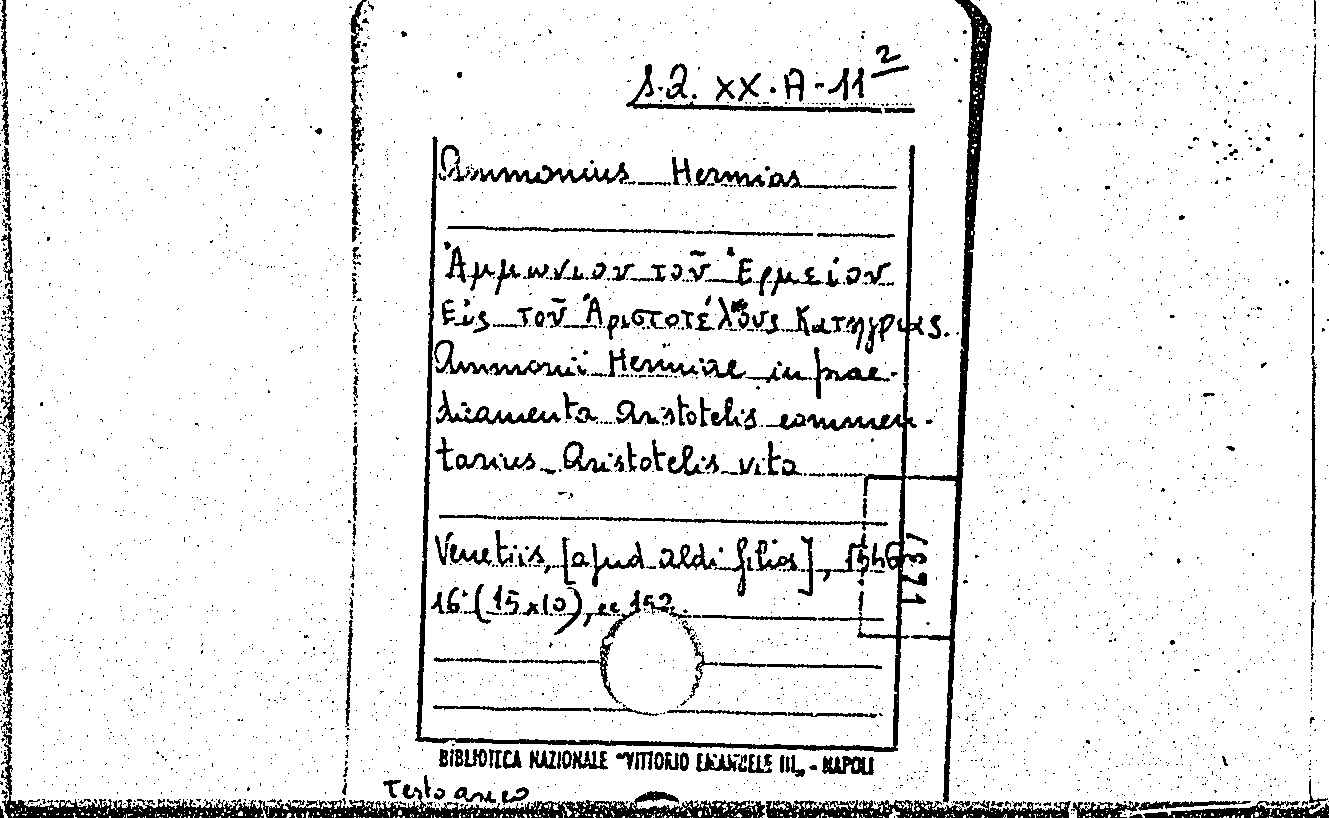 S.Q. XX.A-11²
Ammonius Hermias
Ἀμμωνιου τοῦ Ἑρμείου
Εἰς τοῦ Ἀριστοτέλους Κατηγριας.
Ammonii Hermiae in prae-
dicamenta Aristotelis commen-
tarius_ Aristotelis vita
Venetiis, [apud Aldi filios], 1546
16° (15x10), cc 152.
BIBLIOTECA NAZIONALE "VITTORIO EMANUELE III„ - NAPOLI
Testo greco